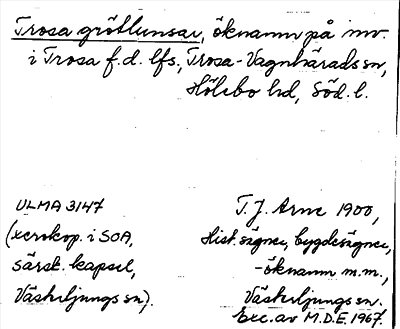 Trosa grötlunsar, öknamn på inv.
i Trosa f.d. lfs, Trosa-Vagnhärads sn,
Hölebo hd, Söd. l.
ULMA 3147
(xerokop. i SOA,
särsk. kapsel,
Västerljungs sn).
T. J. Arne 1900,
Hist. sägner, bygdesägner,
-öknamn m.m.,
Västerljungs sn.
Exc. av M.D.E. 1967.